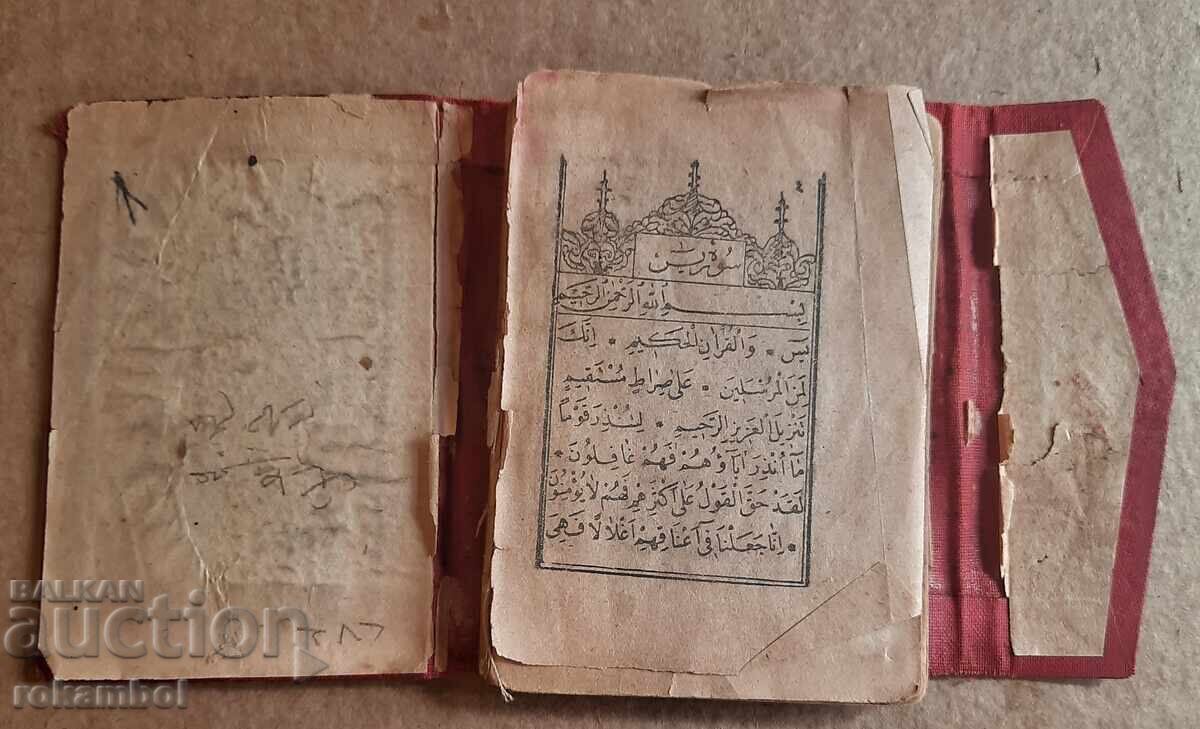 ٤
سورة يس
بِسْمِ اللّٰهِ الرَّحْمٰنِ الرَّحِيمِ
يٰسٓ * وَالْقُرْاٰنِ الْحَكِيمِ * اِنَّكَ
لَمِنَ الْمُرْسَلِينَ * عَلٰى صِرَاطٍ مُسْتَقِيمٍ
تَنْزِيلَ الْعَزِيزِ الرَّحِيمِ * لِتُنْذِرَ قَوْمًا
مَٓا اُنْذِرَ اٰبَٓاؤُهُمْ فَهُمْ غَافِلُونَ *
لَقَدْ حَقَّ الْقَوْلُ عَلٰٓى اَكْثَرِهِمْ فَهُمْ لَا يُؤْمِنُونَ
* اِنَّا جَعَلْنَا فِٓى اَعْنَاقِهِمْ اَغْلَالًا فَهِىَ
BALKAN
auction
rokambol